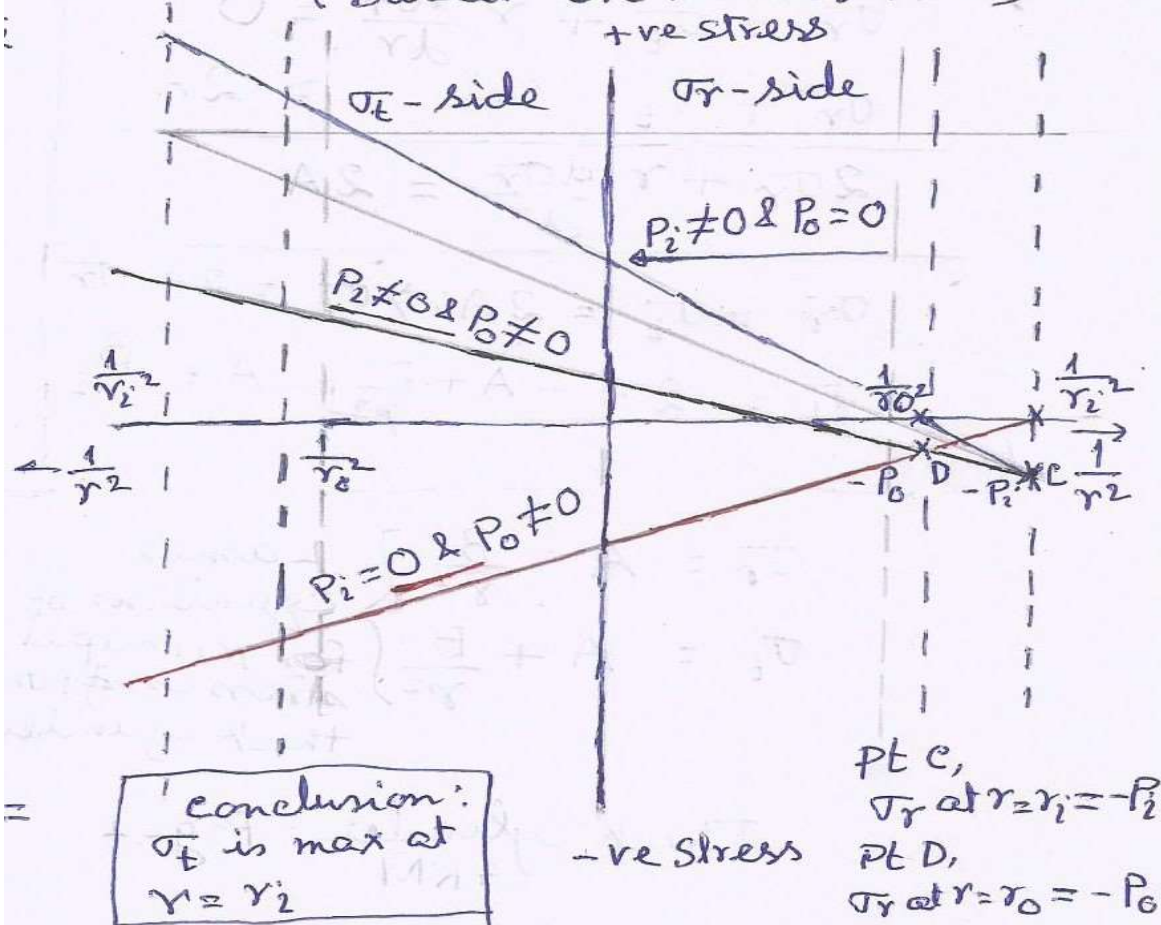 +ve stress
σt - side
σr - side
Pi ≠ 0 & Po = 0
P2 ≠ 0 & Po ≠ 0
1/ri²
1/ro²
1/ri²
← 1/r²
1/ro²
-Po
D
-Pi
C
→ 1/r²
Pi = 0 & Po ≠ 0
conclusion:
σt is max at
r = ri
-ve Stress
pt C,
σr at r = ri = -Pi
pt D,
σr at r = ro = -Po
=